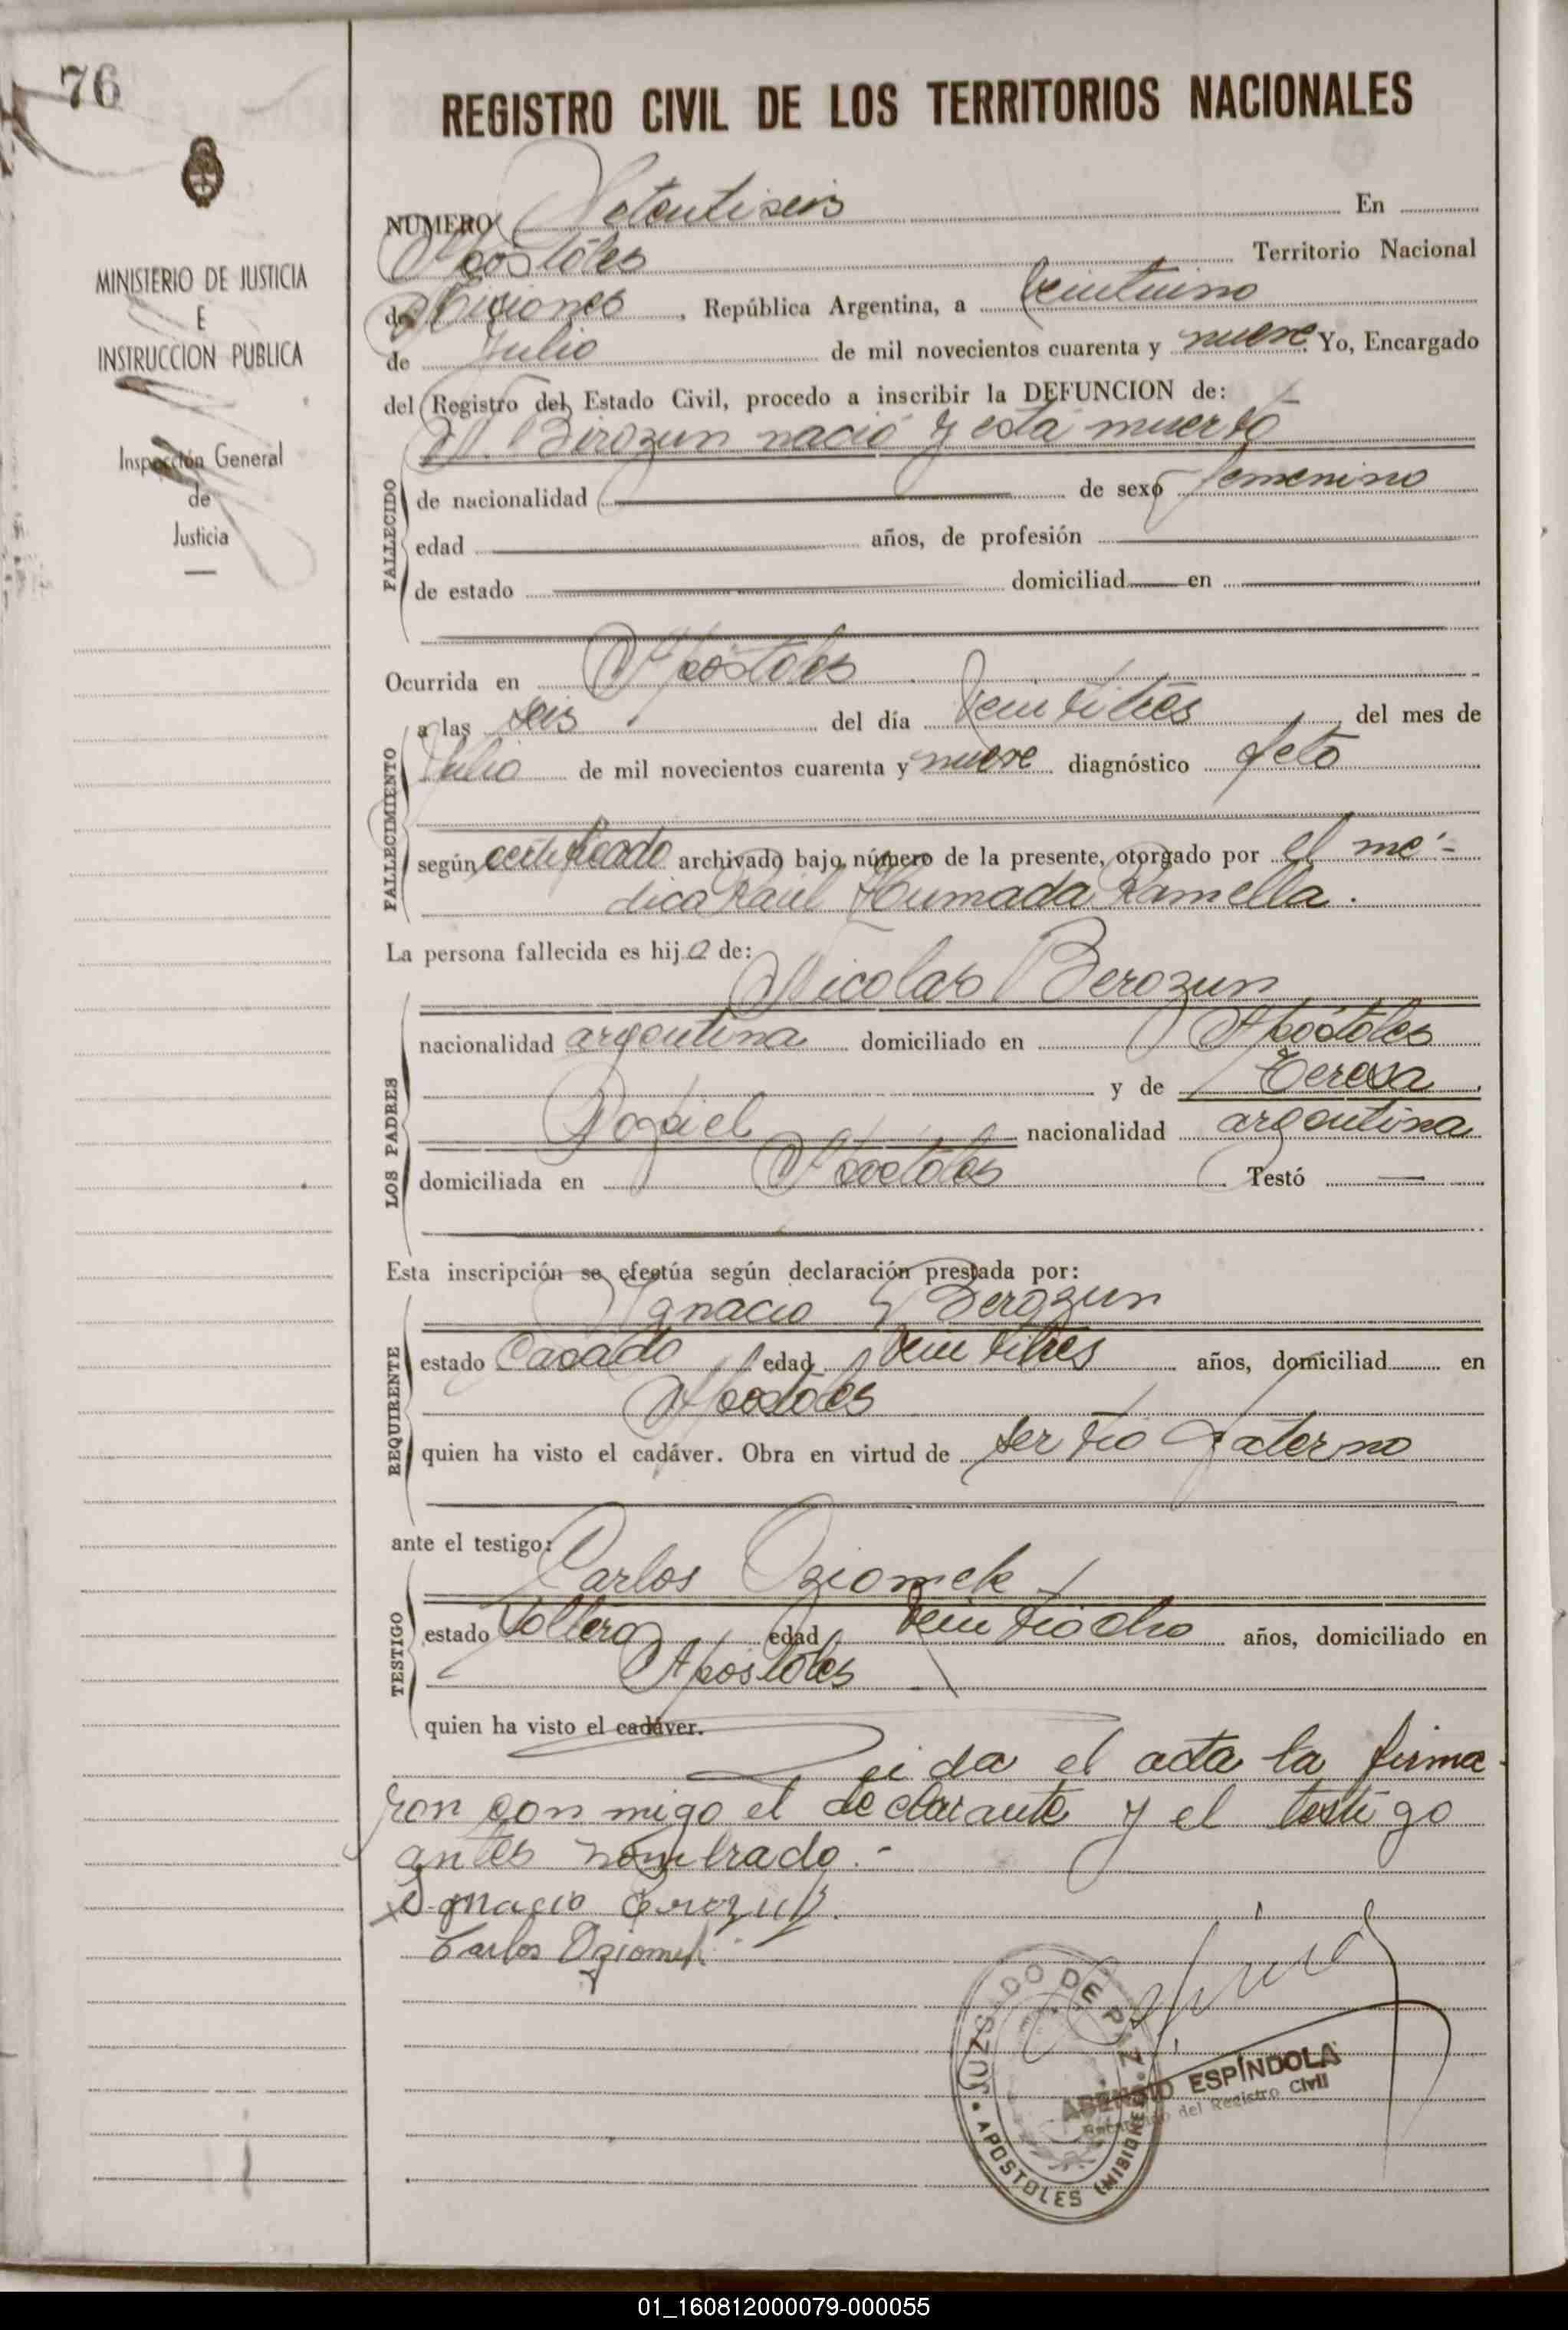 76
REGISTRO CIVIL DE LOS TERRITORIOS NACIONALES
MINISTERIO DE JUSTICIA
E
INSTRUCCION PUBLICA
Inspección General
de
Justicia
NUMERO Setentiseis En
Apostoles Territorio Nacional
de Misiones, República Argentina, a veintiuno
de Julio de mil novecientos cuarenta y nueve. Yo, Encargado
del Registro del Estado Civil, procedo a inscribir la DEFUNCION de:
N. Birozun nació y esta muerto
FALLECIDO
de nacionalidad de sexo femenino
edad años, de profesión
de estado domiciliad en
Ocurrida en Apóstoles
FALLECIMIENTO
a las seis del día veintitres del mes de
Julio de mil novecientos cuarenta y nueve diagnóstico feto
según certificado archivado bajo número de la presente, otorgado por el mé-
dico Raúl Humada Ramella.
La persona fallecida es hija de:
LOS PADRES
Nicolas Berozun
nacionalidad argentina domiciliado en Apóstoles
y de Teresa
nacionalidad argentina
domiciliada en Apostoles Testó
Esta inscripción se efectúa según declaración prestada por:
REQUIRENTE
Ignacio Berozun
estado Casado edad veintitres años, domiciliad en
Apostoles
quien ha visto el cadáver. Obra en virtud de ser tio paterno
ante el testigo:
TESTIGO
Carlos Oziomek
estado soltero edad veintiocho años, domiciliado en
Apostoles
quien ha visto el cadáver.
Leida el acta la firma-
ron conmigo el declarante y el testigo
antes nombrado.-
Ignacio
Carlos Oziomek
JUZGADO DE PAZ
APOSTOLES (MISIONES)
ASENCIO ESPÍNDOLA
Encargado del Registro Civil
01_160812000079-000055